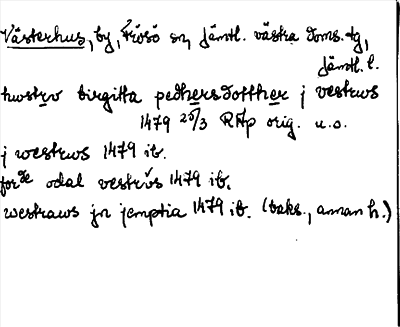 Västerhus, by, Frösö sn, Jämtl. västra doms. tg,
Jämtl. l.
hwstrv birgitta pedhersdotther j vestrws
1479 25/3 RAp orig. u.s.
j westrws 1479 ib.
forde odal vestrvs 1479 ib.
westraws jn jemptia 1479 ib. (baks., annan h.)